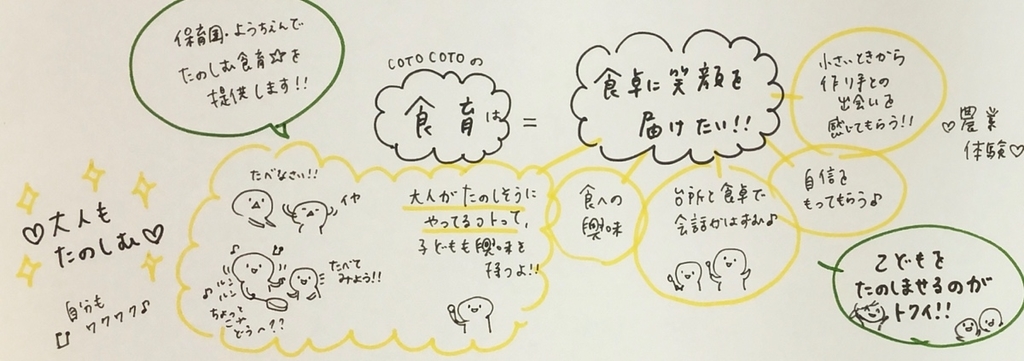 保育園・ようちえんで
たのしむ食育☆を
提供します!!
COTO COTO の
食育は
=
食卓に笑顔を
届けたい!!
小さいときから
作り手との
出会いを
感じてもらう!!
♡農業
体験♡
たべなさい!!
イヤ
大人がたのしそうに
やってるコトって、
子どもも興味を
持つよ!!
食への
興味
台所と食卓で
会話がはずむ♪
自信を
もってもらう♪
♡大人も
たのしむ♡
自分も
ワクワク♪
ルン
ルン
たべて
みよう!!
ちょっと
どう〜??
こどもを
たのしませるのが
トクイ!!